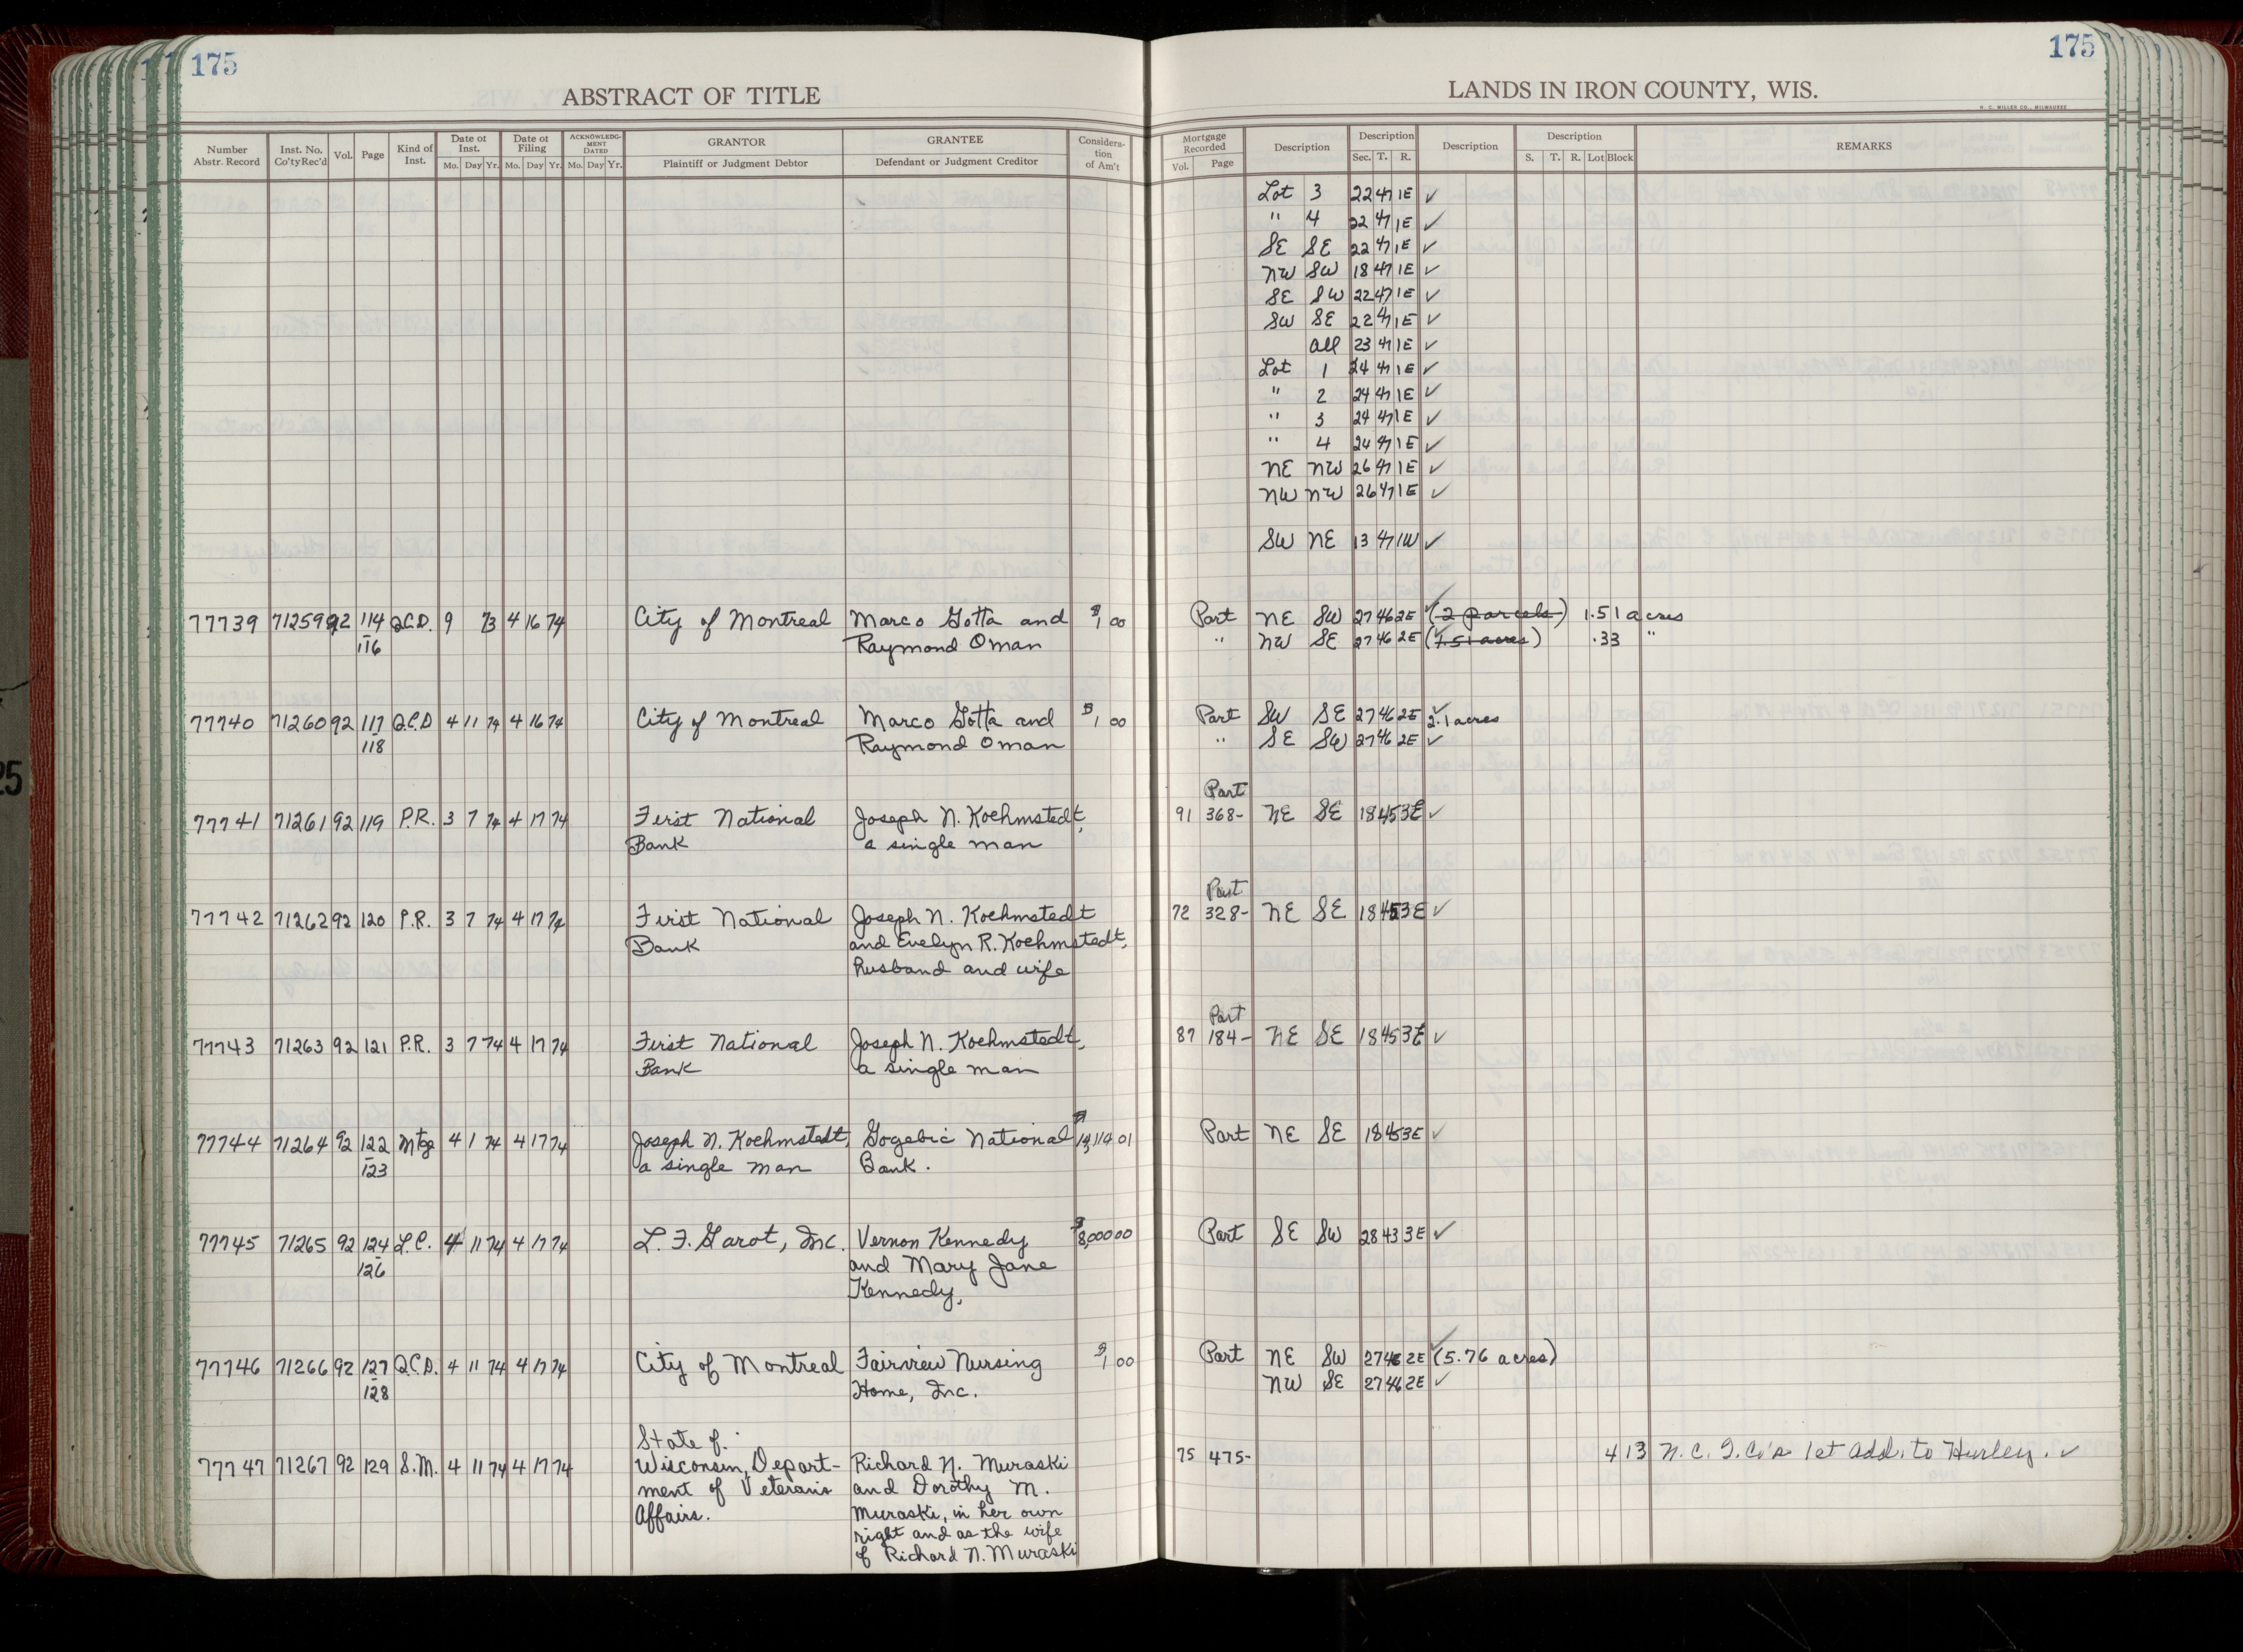 175
ABSTRACT OF TITLE
Number Abstr. Record | Inst. No. Co'tyRec'd | Vol. | Page | Kind of Inst. | Date of Inst. Mo. Day Yr. | Date of Filing Mo. Day Yr. | ACKNOWLEDGMENT DATED Mo. Day Yr. | GRANTOR Plaintiff or Judgment Debtor | GRANTEE Defendant or Judgment Creditor | Consideration of Am't
77739 71259 92 114 Q.C.D. 9 73 4 16 74 City of Montreal Marco Gotta and $1 00
116 Raymond Oman
77740 71260 92 117 Q.C.D 4 11 74 4 16 74 City of Montreal Marco Gotta and $1 00
118 Raymond Oman
77741 71261 92 119 P.R. 3 7 74 4 17 74 First National Joseph N. Koehmstedt,
Bank a single man
77742 71262 92 120 P.R. 3 7 74 4 17 74 First National Joseph N. Koehmstedt
Bank and Evelyn R. Koehmstedt,
husband and wife
77743 71263 92 121 P.R. 3 7 74 4 17 74 First National Joseph N. Koehmstedt,
Bank a single man
77744 71264 92 122 Mtg 4 1 74 4 17 74 Joseph N. Koehmstedt, Gogebic National
123 a single man Bank.
77745 71265 92 124 L.C. 4 11 74 4 17 74 L. F. Garot, Inc. Vernon Kennedy $8,000 00
126 and Mary Jane
Kennedy,
77746 71266 92 127 Q.C.D. 4 11 74 4 17 74 City of Montreal Fairview Nursing $1 00
128 Home, Inc.
State of
77747 71267 92 129 S.M. 4 11 74 4 17 74 Wisconsin, Depart- Richard N. Muraski
ment of Veterans and Dorothy M.
Affairs. Muraski, in her own
right and as the wife
of Richard N. Muraski
175
LANDS IN IRON COUNTY, WIS.
H. C. MILLER CO., MILWAUKEE
Mortgage Recorded Vol. Page | Description | Description Sec. T. R. | Description | Description S. T. R. Lot Block | REMARKS
Lot 3 22 47 1E ✓
" 4 22 47 1E ✓
SE SE 22 47 1E ✓
NW SW 18 47 1E ✓
SE SW 22 47 1E ✓
SW SE 22 47 1E ✓
all 23 47 1E ✓
Lot 1 24 47 1E ✓
" 2 24 47 1E ✓
" 3 24 47 1E ✓
" 4 24 47 1E ✓
NE NW 26 47 1E ✓
NW NW 26 47 1E ✓
SW NE 13 47 1W ✓
Part NE SW 27 46 2E ✓ (2 parcels) 1.51 acres
" NW SE 27 46 2E (1.51 acres) .33 "
Part SW SE 27 46 2E ✓ 2.1 acres
" SE SW 27 46 2E ✓
Part
91 368- NE SE 18 45 3E ✓
Part
72 328- NE SE 18 45 3E ✓
Part
87 184- NE SE 18 45 3E ✓
Part NE SE 18 45 3E ✓
Part SE SW 28 43 3E ✓
Part NE SW 27 46 2E ✓ (5.76 acres)
NW SE 27 46 2E ✓
75 475- 4 13 N. C. I. Co's 1st Add. to Hurley. ✓
25